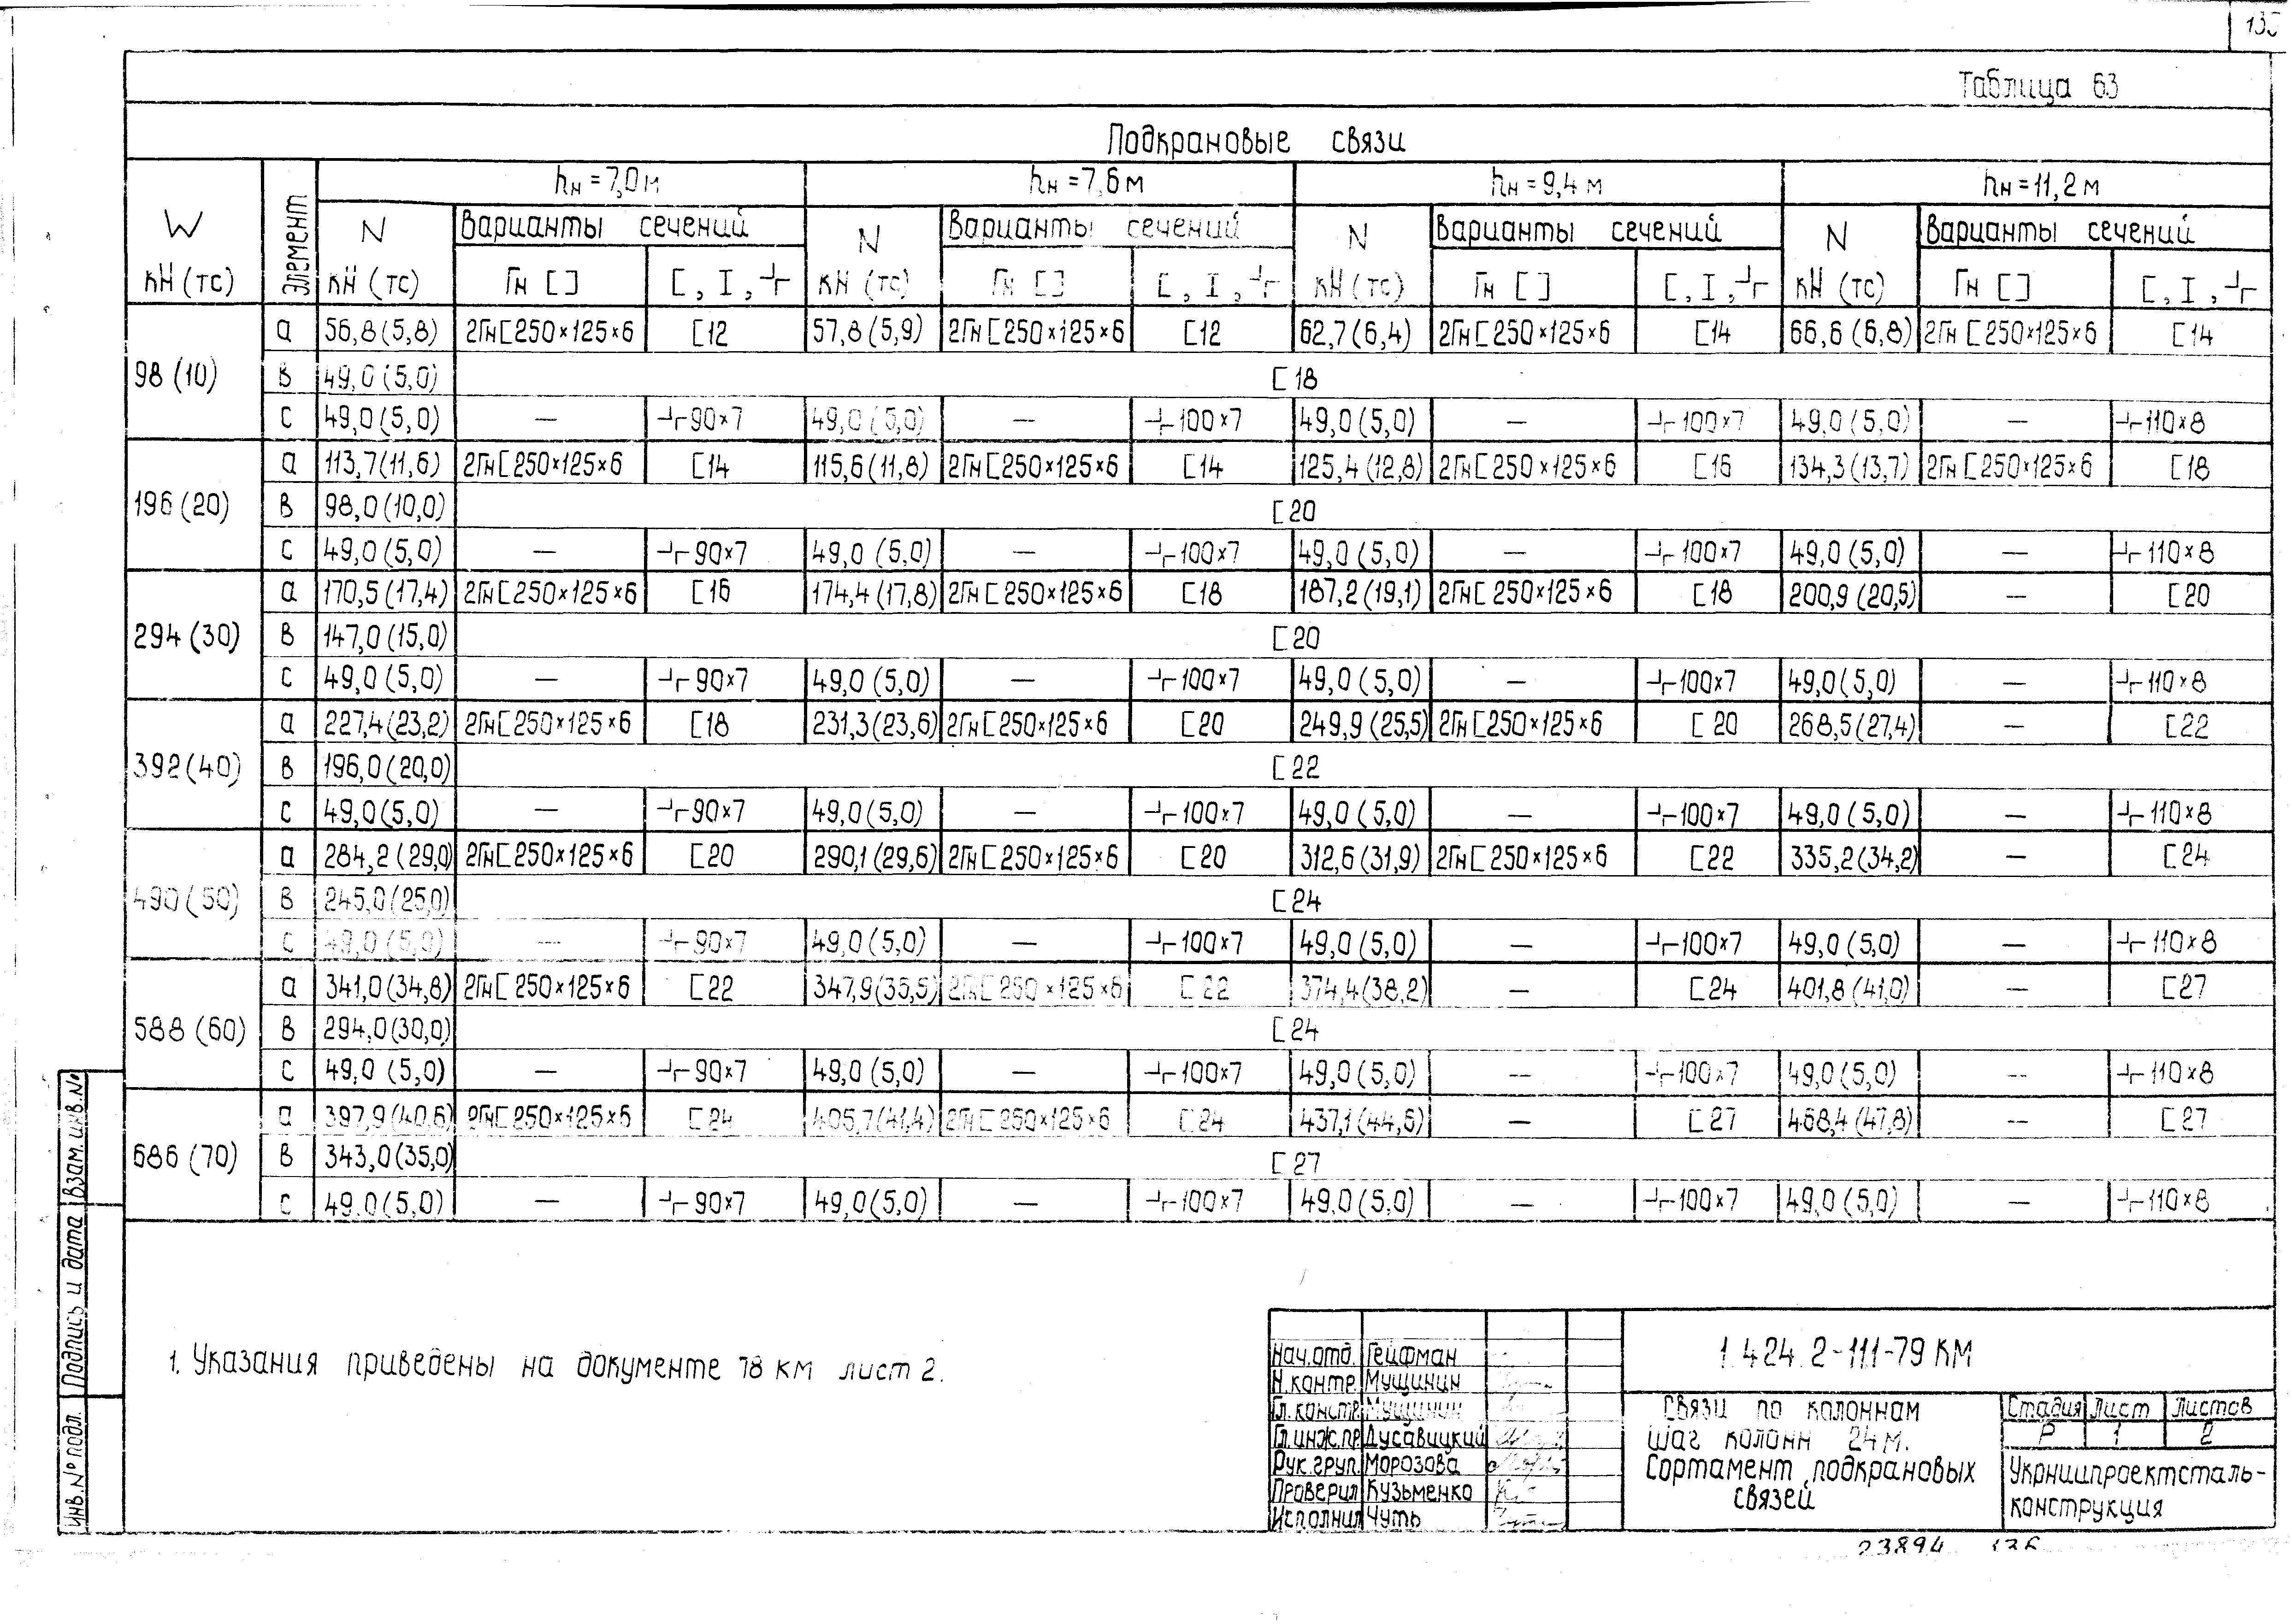 Таблица 63
Подкрановые связи
W кН (тс) Элемент hн = 7,0 м hн = 7,6 м hн = 9,4 м hн = 11,2 м
N кН (тс) Варианты сечений N кН (тс) Варианты сечений N кН (тс) Варианты сечений N кН (тс) Варианты сечений
Гн [] [, I, ┘┌ Гн [] [, I, ┘┌ Гн [] [, I, ┘┌ Гн [] [, I, ┘┌
98 (10) а 56,8 (5,8) 2Гн[250×125×6 [12 57,8 (5,9) 2Гн[250×125×6 [12 62,7 (6,4) 2Гн[250×125×6 [14 66,6 (6,8) 2Гн[250×125×6 [14
в 49,0 (5,0) [18
с 49,0 (5,0) — ┘┌90×7 49,0 (5,0) — ┘┌100×7 49,0 (5,0) — ┘┌100×7 49,0 (5,0) — ┘┌110×8
196 (20) а 113,7 (11,6) 2Гн[250×125×6 [14 115,6 (11,8) 2Гн[250×125×6 [14 125,4 (12,8) 2Гн[250×125×6 [16 134,3 (13,7) 2Гн[250×125×6 [18
в 98,0 (10,0) [20
с 49,0 (5,0) — ┘┌90×7 49,0 (5,0) — ┘┌100×7 49,0 (5,0) — ┘┌100×7 49,0 (5,0) — ┘┌110×8
294 (30) а 170,5 (17,4) 2Гн[250×125×6 [16 174,4 (17,8) 2Гн[250×125×6 [18 187,2 (19,1) 2Гн[250×125×6 [18 200,9 (20,5) — [20
в 147,0 (15,0) [20
с 49,0 (5,0) — ┘┌90×7 49,0 (5,0) — ┘┌100×7 49,0 (5,0) — ┘┌100×7 49,0 (5,0) — ┘┌110×8
392 (40) а 227,4 (23,2) 2Гн[250×125×6 [18 231,3 (23,6) 2Гн[250×125×6 [20 249,9 (25,5) 2Гн[250×125×6 [20 268,5 (27,4) — [22
в 196,0 (20,0) [22
с 49,0 (5,0) — ┘┌90×7 49,0 (5,0) — ┘┌100×7 49,0 (5,0) — ┘┌100×7 49,0 (5,0) — ┘┌110×8
490 (50) а 284,2 (29,0) 2Гн[250×125×6 [20 290,1 (29,6) 2Гн[250×125×6 [20 312,6 (31,9) 2Гн[250×125×6 [22 335,2 (34,2) — [24
в 245,0 (25,0) [24
с 49,0 (5,0) — ┘┌90×7 49,0 (5,0) — ┘┌100×7 49,0 (5,0) — ┘┌100×7 49,0 (5,0) — ┘┌110×8
588 (60) а 341,0 (34,8) 2Гн[250×125×6 [22 347,9 (35,5) 2Гн[250×125×6 [22 374,4 (38,2) — [24 401,8 (41,0) — [27
в 294,0 (30,0) [24
с 49,0 (5,0) — ┘┌90×7 49,0 (5,0) — ┘┌100×7 49,0 (5,0) — ┘┌100×7 49,0 (5,0) — ┘┌110×8
686 (70) а 397,9 (40,6) 2Гн[250×125×6 [24 405,7 (41,4) 2Гн[250×125×6 [24 437,1 (44,6) — [27 468,4 (47,8) — [27
в 343,0 (35,0) [27
с 49,0 (5,0) — ┘┌90×7 49,0 (5,0) — ┘┌100×7 49,0 (5,0) — ┘┌100×7 49,0 (5,0) — ┘┌110×8
1. Указания приведены на документе 78 КМ лист 2.
Взам. инв. №
Подпись и дата
Инв. № подл.
Нач. отд. Гейфман
Н. контр. Мущинин
Гл. констр. Мущинин
Гл. инж. пр. Дусавицкий
Рук. груп. Морозова
Проверил Кузьменко
Исполнил Чуть
1.424.2-111-79 КМ
Связи по колоннам
шаг колонн 24 м.
Сортамент подкрановых
связей
Стадия Лист Листов
Р 1 2
Укрниипроектсталь-
конструкция
23894 136